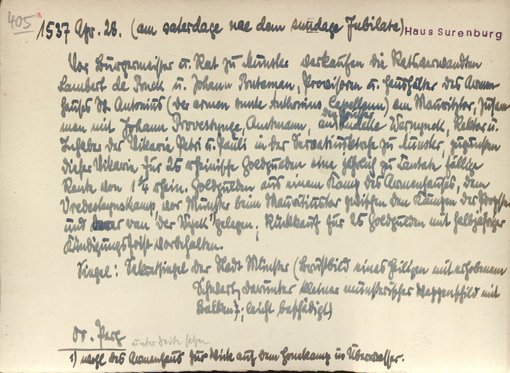 405
1537 Apr. 28. (am saterdage nae dem sundage Jubilate) Haus Surenburg
Vor Bürgermeister u. Rat zu Münster verkaufen die Ratsverwandten
Lambert de und Johann Provisoren u. des Armen-
hauses St. Antonius (der armen sunte Anthonius Capellen) am Mauritztor, zusam-
men mit Johann Amtmann, an Rudolf Rektor u.
Inhaber der Vikarie Petri u. Pauli in der zu Münster, zugunsten
dieser Vikarie für 25 rheinische Goldgulden eine jährlich zu Cantate fällige
Rente von 1 1/4 rhein. Goldgulden aus einem Kamp des Armenhauses, dem
vor Münster beim Mauritztor zwischen den Kämpen der
und van der Wyck gelegen; Rückkauf für 25 Goldgulden mit halbjähriger
Kündigungsfrist vorbehalten.
Siegel: Sekretsiegel der Stadt Münster (Brustbild eines Heiligen mit erhobenem
Schwert, darunter kleiner münsterischer Wappenschild mit
Balken), leicht beschädigt)
unter Seite sehen
1) wohl das Armenhaus zur Wiek auf dem Honekamp in Überwasser.